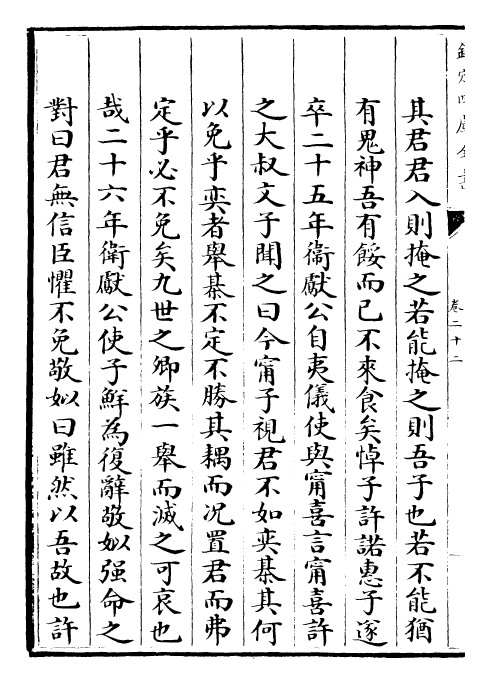 欽定四庫全書
卷二十二
其君君入則掩之若能掩之則吾子也若不能猶
有鬼神吾有餒而已不來食矣悼子許諾惠子遂
卒二十五年衛獻公自夷儀使與甯喜言甯喜許
之大叔文子聞之曰今甯子視君不如奕棊其何
以免乎奕者舉棊不定不勝其耦而况置君而弗
定乎必不免矣九世之卿族一舉而滅之可哀也
哉二十六年衛獻公使子鮮為復辭敬姒强命之
對曰君無信臣懼不免敬姒曰雖然以吾故也許